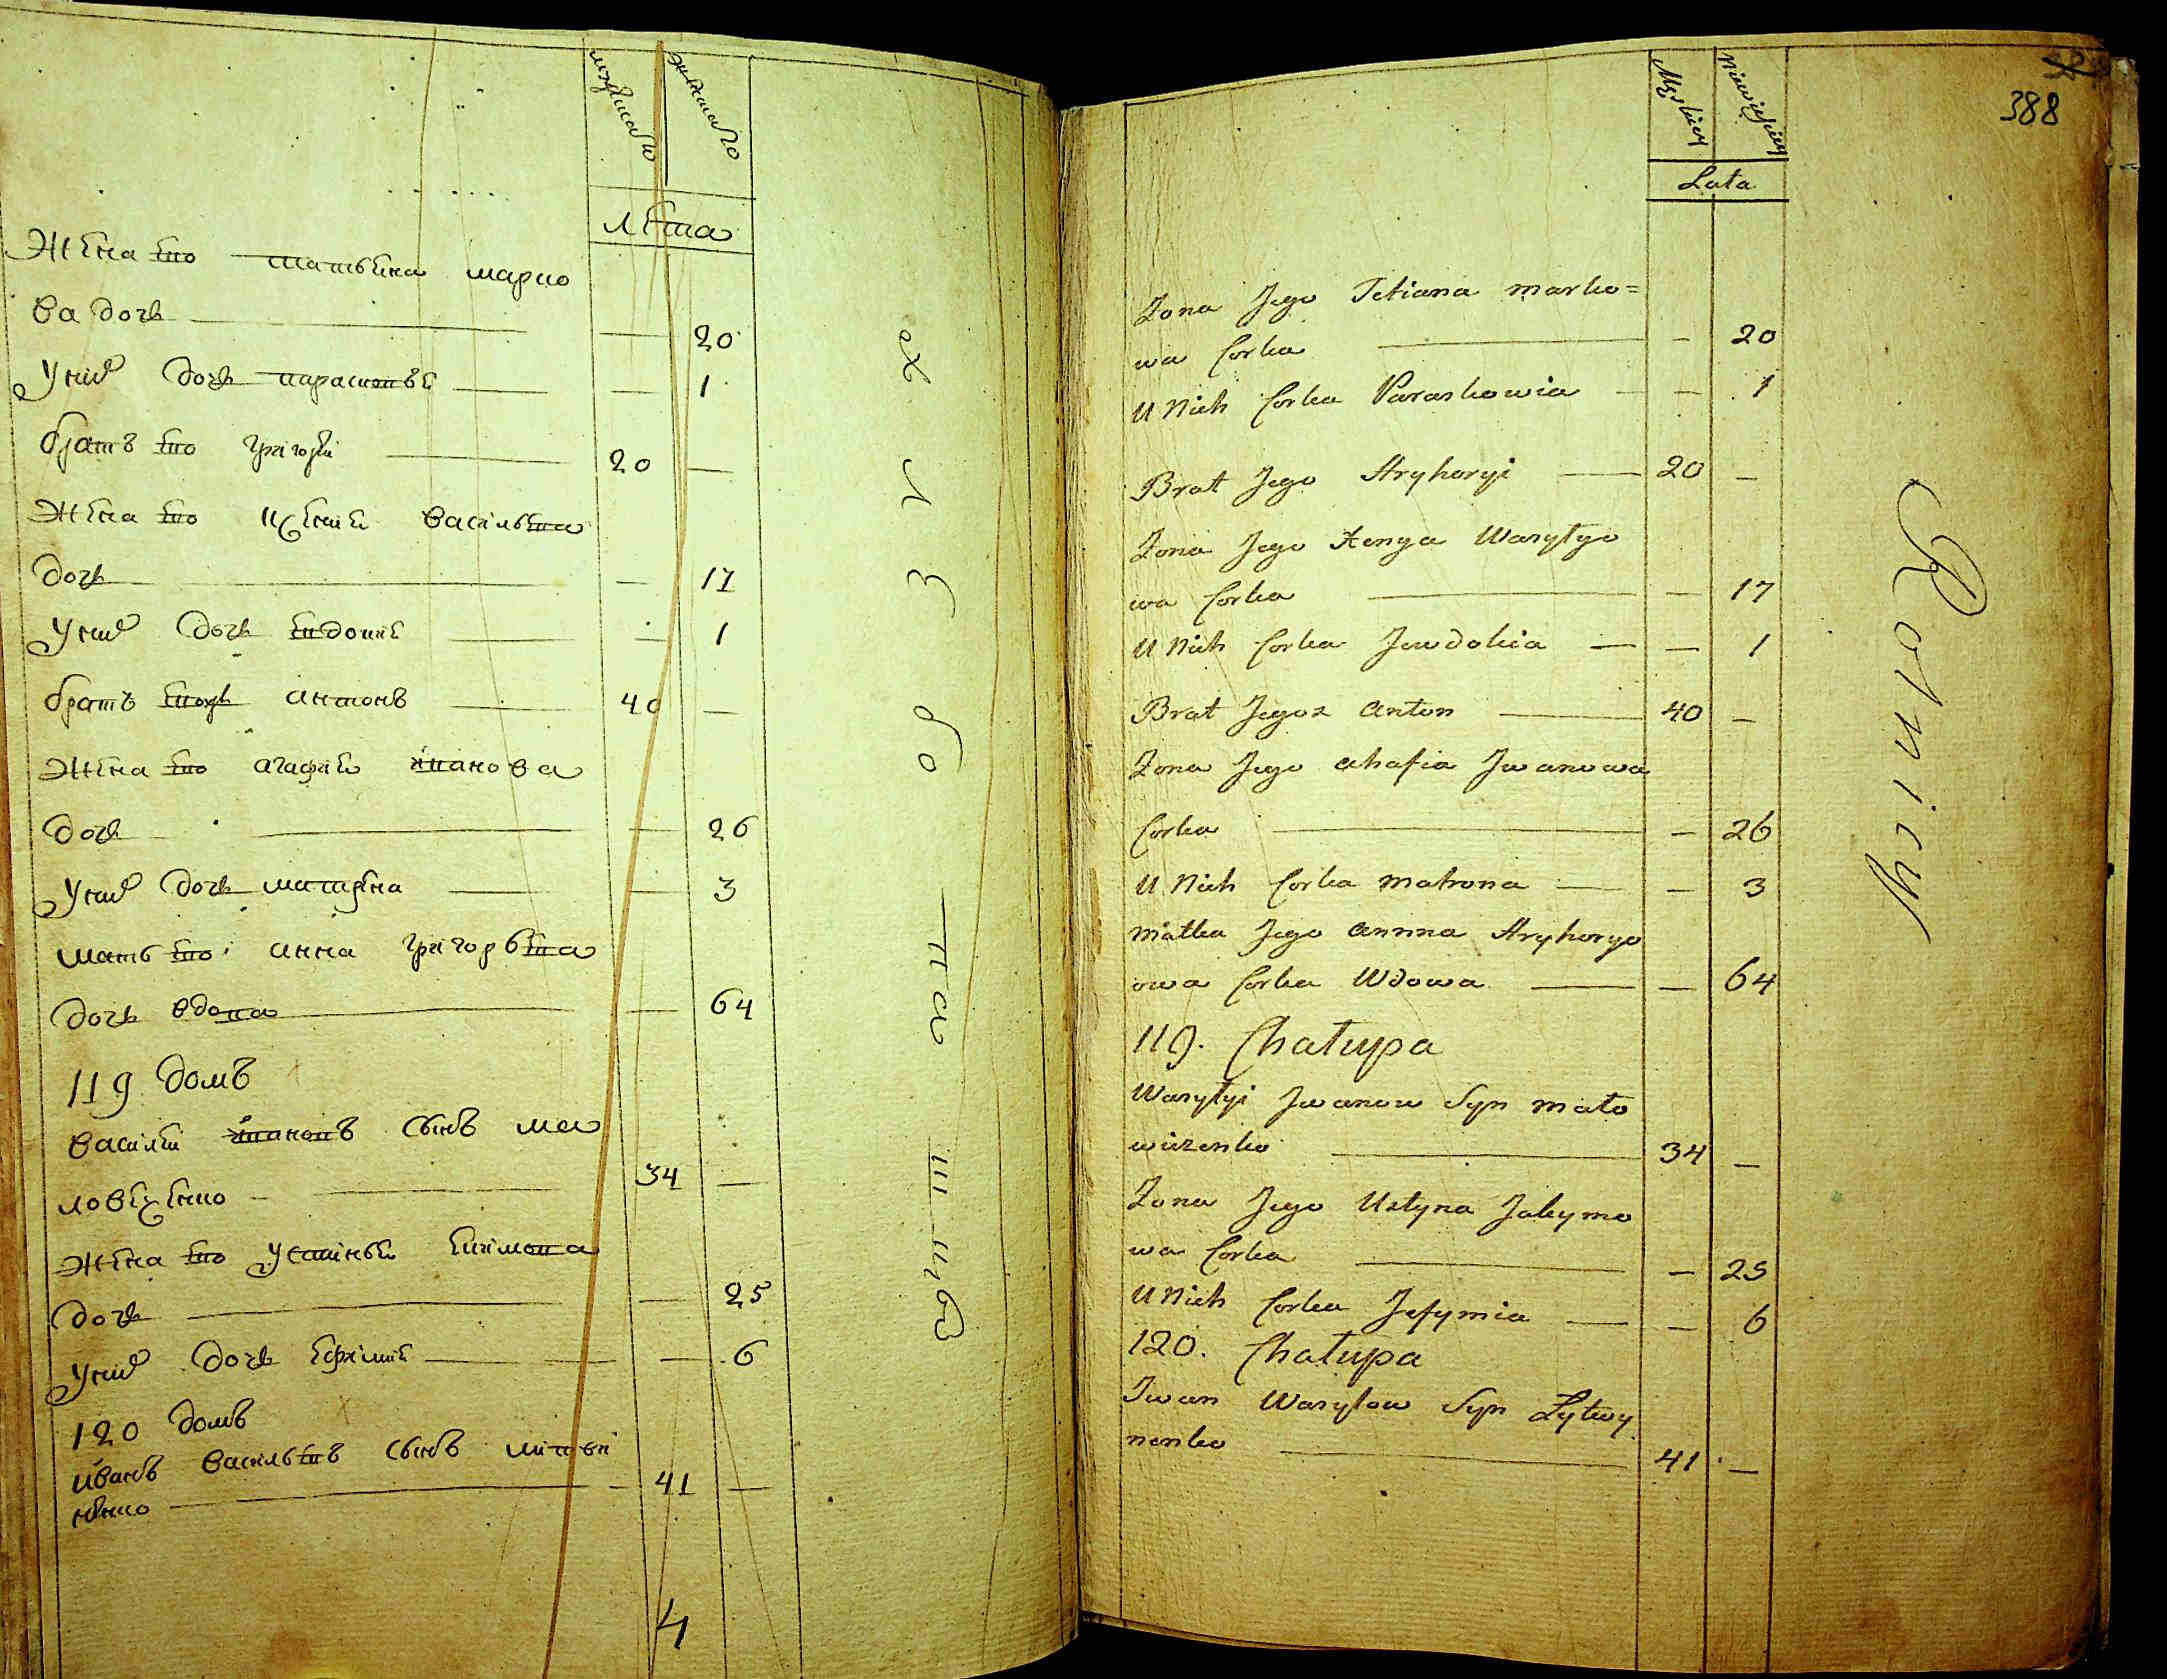 мужеска
женска
лѣта
Жена его татьяна марко
ва дочь 20
У них дочь парасковѣя 1
братъ его григорей 20
Жена его ксения васильева
дочь 17
У них дочь евдокия 1
братъ егожъ антонъ 40
Жена его агафия иванова
дочь 26
У них дочь матрена 3
мать его анна григорьева
дочь вдова 64
119 домъ
василей ивановъ сынъ ма
ловиченко 34
жена его устинья екимова
дочь 25
У них дочь ефимия 6
120 домъ
иванъ васильевъ сынъ литви
ненко 41
4
388
Męskiey
Niewieściey
Lata
Żona Jego Tetiana Marko=
wa Corka — 20
U Nich Corka Paraskowia — 1
Brat Jego Hryhoryi 20 —
Żona Jego Xenya Wasyłyo
wa Corka — 17
U Nich Corka Jewdokia — 1
Brat Jegoż Anton 40 —
Żona Jego Ahafia Jwanowa
Corka — 26
U Nich Corka Matrona — 3
Matka Jego Annna Hryhoryo
owa Corka Wdowa — 64
119. Chałupa
Wasyłyi Jwanow Syn Mało
wiczenko 34 —
Żona Jego Ustyna Jakymo
wa Corka — 25
U Nich Corka Jefymia — 6
120. Chałupa
Jwan Wasylow Syn Lytwy
nenko 41 —
Rolnicy